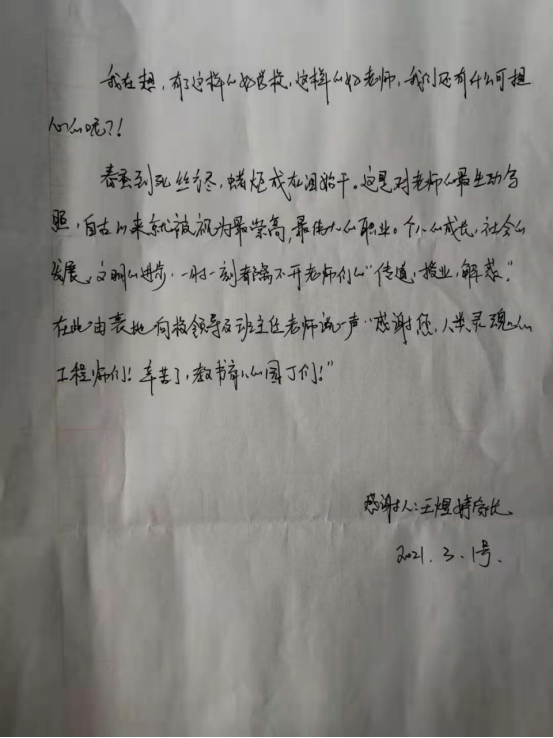 我在想,有了这样的好学校,这样的好老师,我们还有什么可担
心的呢?!
春蚕到死丝方尽,蜡炬成灰泪始干。这是对老师的最生动写
照,自古以来就被视为最崇高,最伟大的职业。个人的成长,社会的
发展,文明的进步,一时一刻都离不开老师们的“传道,授业,解惑”。
在此由衷地向校领导及班主任老师说一声“感谢您,人类灵魂的
工程师们!辛苦了,教书育人的园丁们!”
感谢人:王煜婧家长
2021.3.1号.